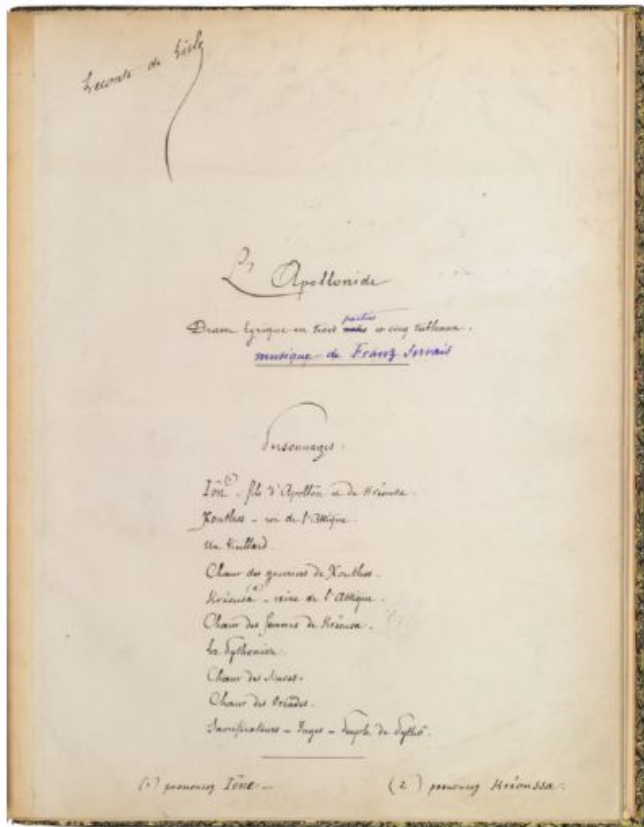 Leconte de Lisle
L'Apollonide
Drame lyrique en trois actes parties et cinq tableaux.
musique de Franz Servais
Personnages.
Iôn (1) - fils d'Apollôn et de Kréousa.
Xouthos - roi de l'Attique.
Un Vieillard.
Chœur des guerriers de Xouthos.
Kréousa (2) - reine de l'Attique.
Chœur des femmes de Kréousa.
La Pythonisse.
Chœur des Muses.
Chœur des Oréades.
Sacrificateurs - Sages - Peuple de Pythô.
(1) prononcez Iône -
(2) prononcez Kréoussa.